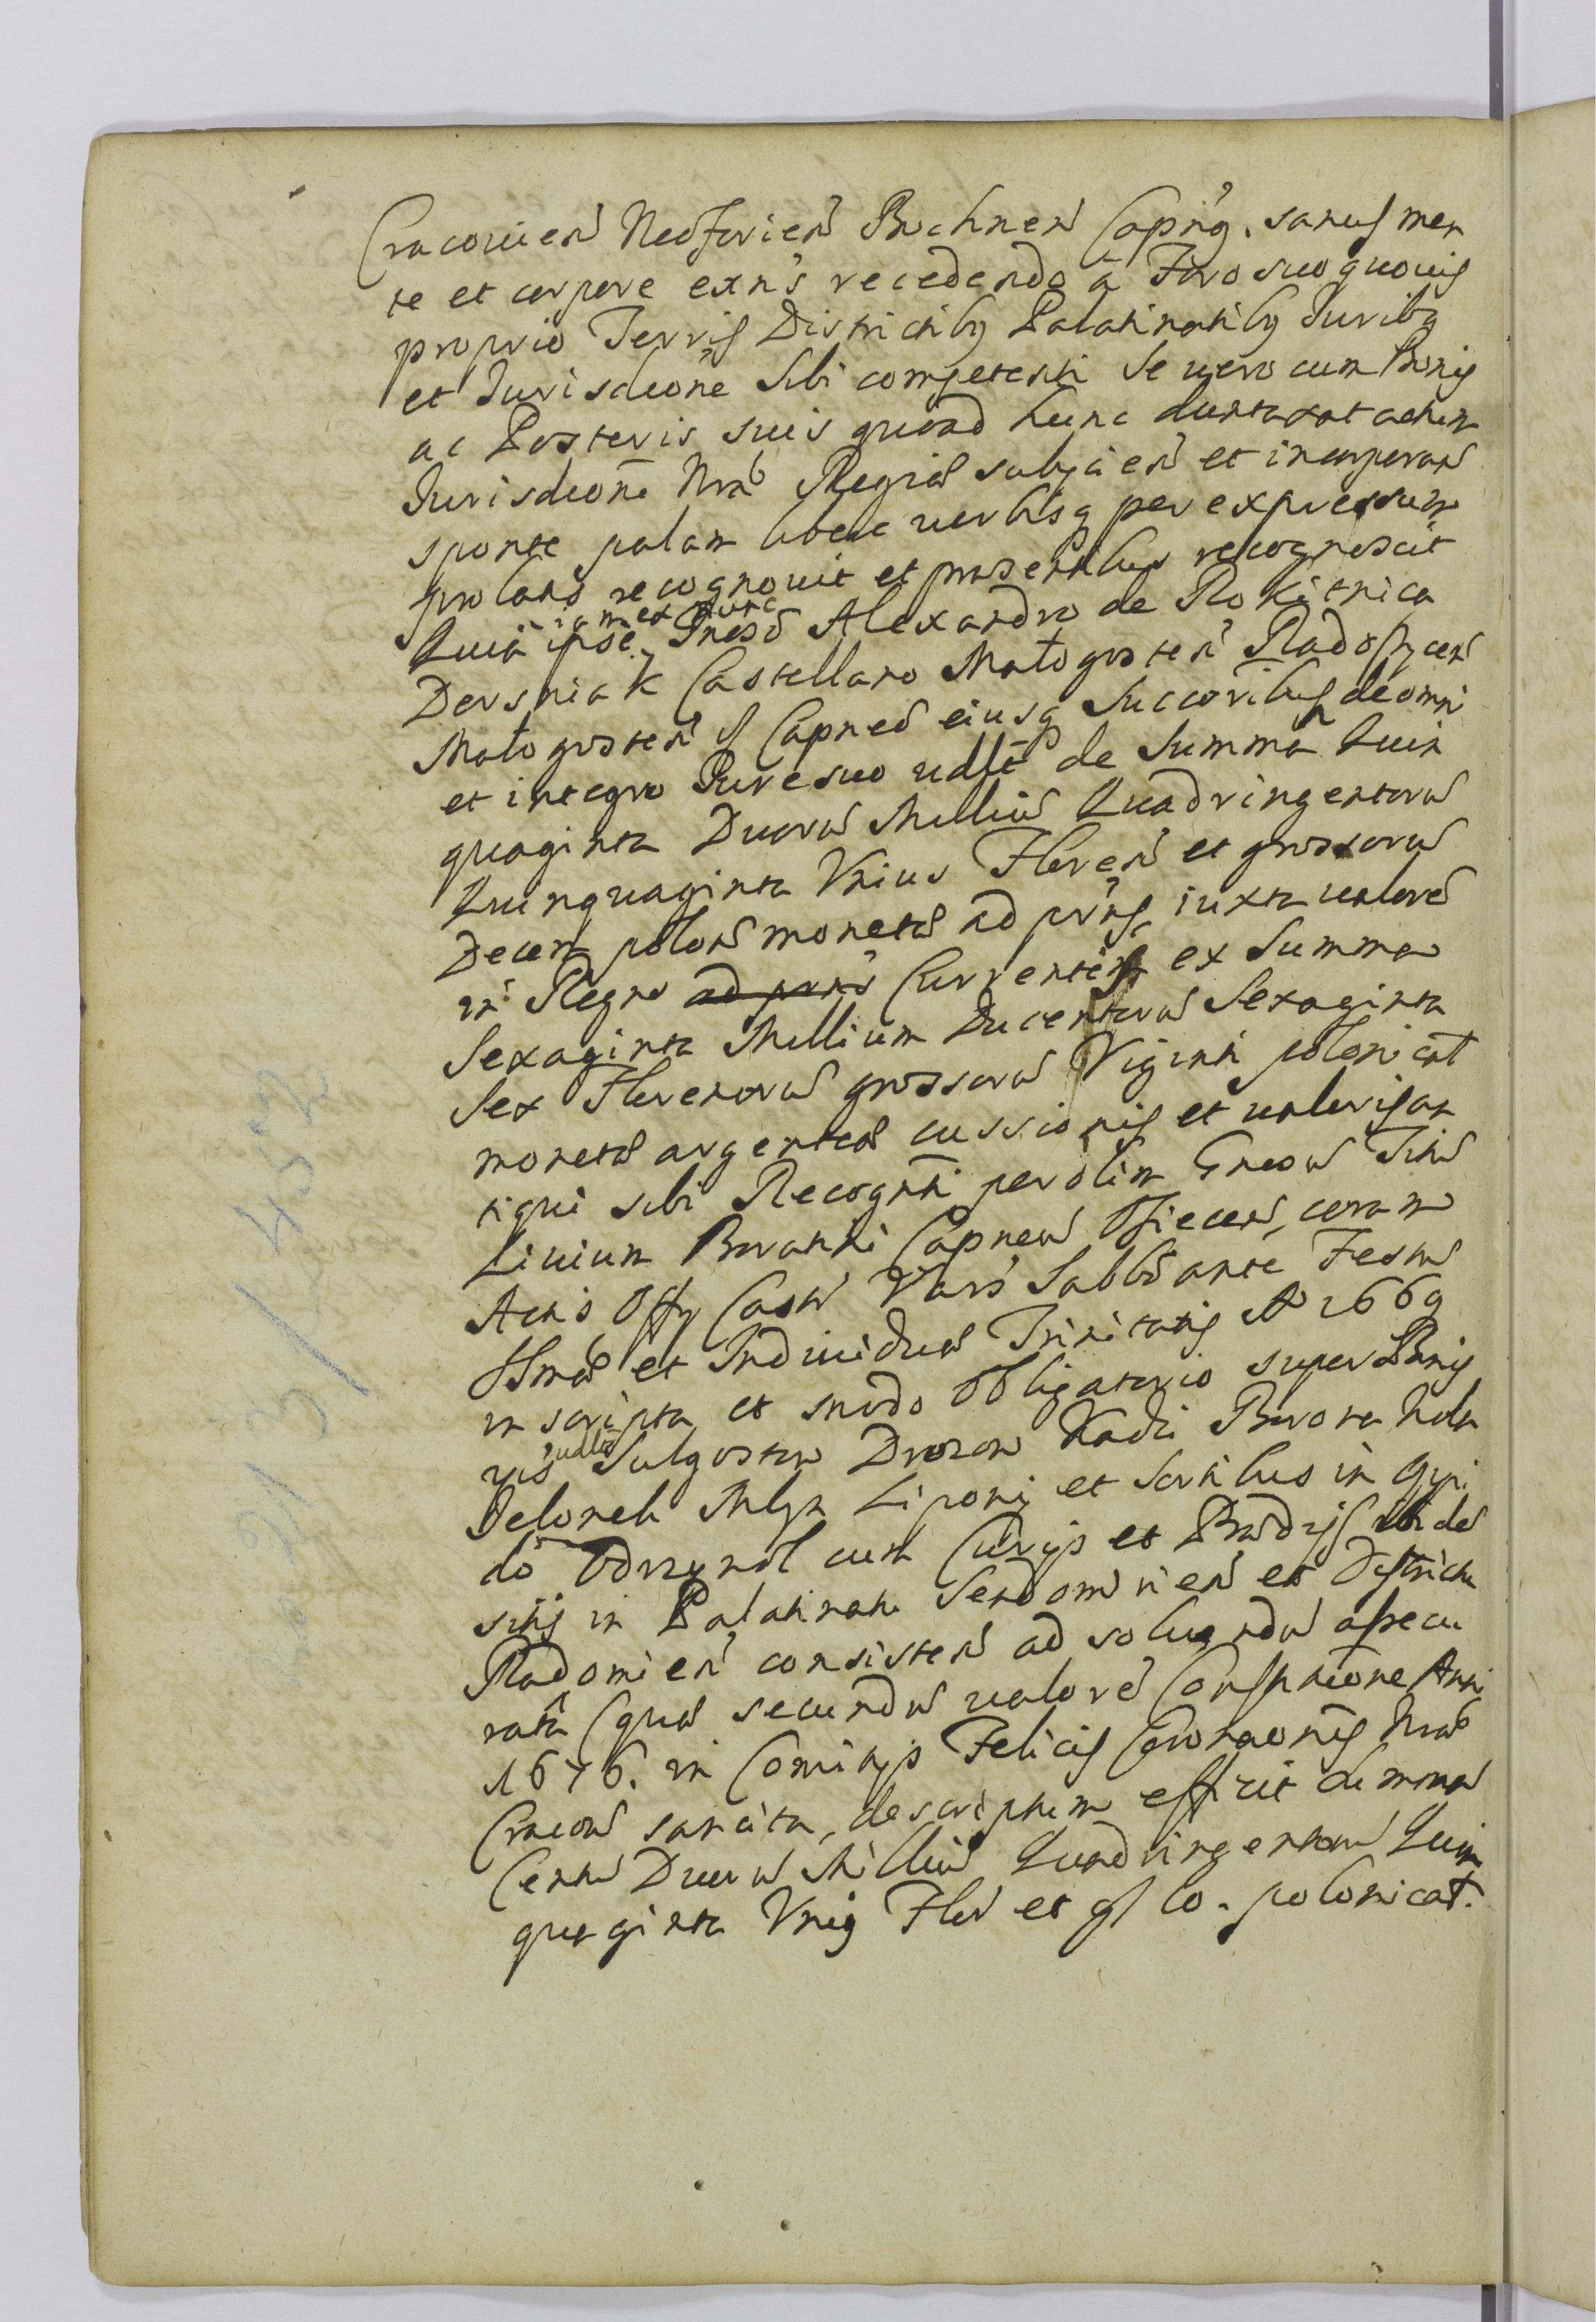 Cracovien Neoforien Bochnen Capnq. sanus men
te et corpore exn's recedendo à Foro suo quovis
proprio Terris Districtibq Palatinatibq Juribq
et Jurisdeone sibi competenti se vero cum Bonis
ac Posteris suis quoad hunc duntaxat actum
Jurisdeone Nrae Regiae subjicien et incorporan
sponte palam libere verbisq per expressum
prolatis recognovit et praesentibus recognoscit
iam ex nunc
Quia ipse Gneso Alexandro de Rokitnica
Dersniak Castellano Małogosten Radoszycen
Małogosten q Capneo eiusq Succoribus de omni
et integro Jure suo vdlt de Summa Quin
quaginta Duoru Milliu Quadringentoru
Quinquaginta Unius Floren et grossoru
Decem polon monetae ad prns iuxta valore
in Regno ad prns Currentis ex Summa
Sexaginta Millium Ducentoru Sexaginta
Sex Florenoru grossoru Viginti polonicat
moneta argentea cussionis et valoris an
tiqui sibi Recognti per olim Gneow Titu
Livium Boratini Capneu Osiecen, coram
Actis Offy Castr Vars Sabbo ante Festu
SSmae et Individuae Trinitatis Ao 1669
inscripta et modo obligatorio super Bonis
vdlt
Sulgostow Drozow Kadzi Borowa Wola
Jelonek Młyn Liponi et Sortibus in Oppi
do Odrzywol cum Curijs et Praedijs ibide
sitis in Palatinatu Sendomirien et Districtu
Radomien consisten ad solvendu assecu
rata (qua secundu valore Constneone Anni
1676. in Comitijs Felicis Coronaonis Nrae
Cracow sancita, descriptum efficit Summa
Centu Duoru Milliu Quadringentoru Quin
quaginta Uniq Flor et gs 10. polonicat.